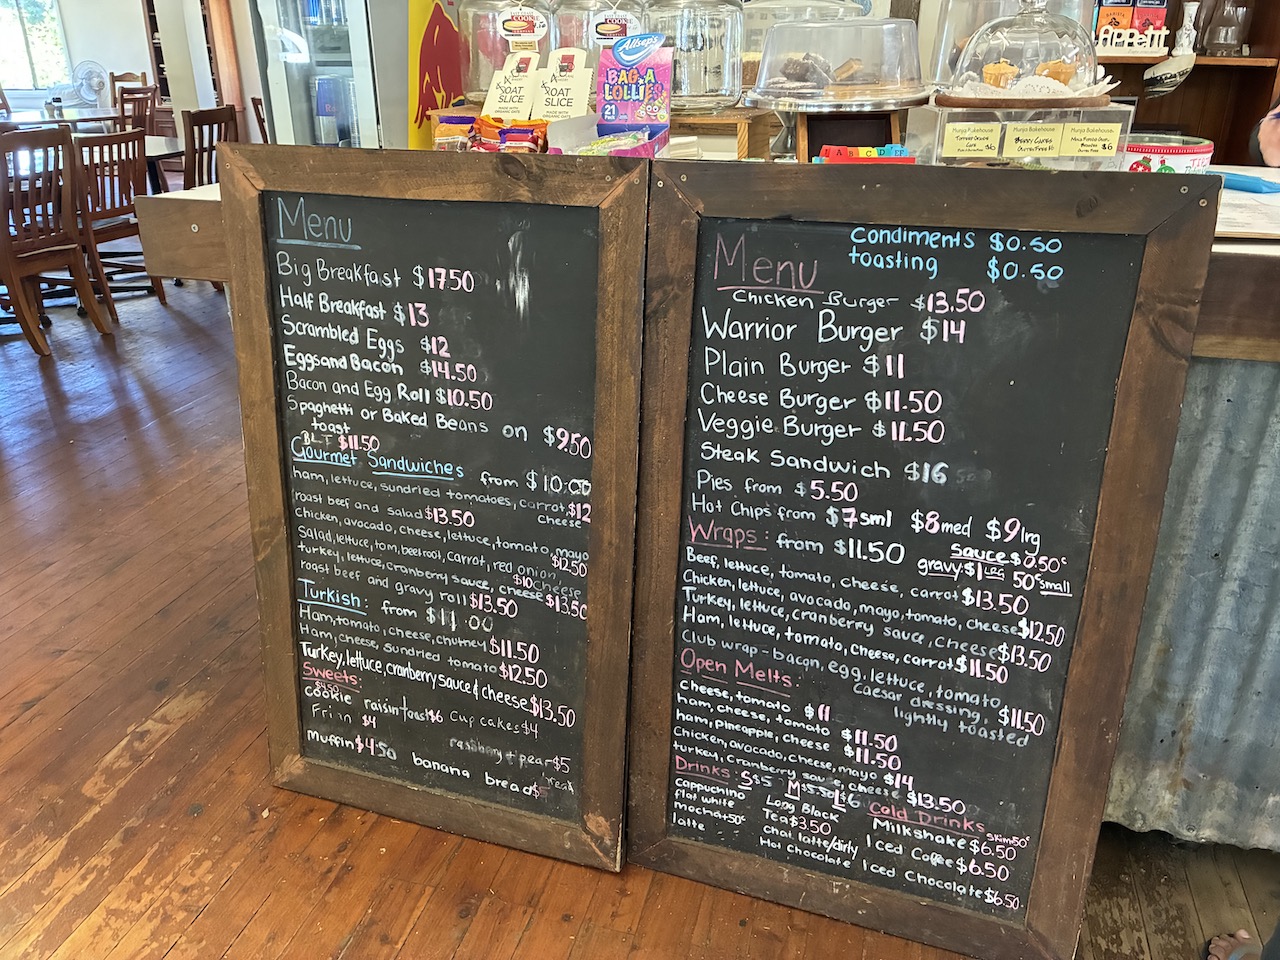 COOKIE
COOKIE
OAT
SLICE
MADE WITH
ORGANIC OATS
OAT
SLICE
MADE WITH
ORGANIC OATS
Allsep's
BAG.A
LOLLIES
21
APPETit
A B C D E F
Munja Bakehouse
Cake
$6
Munja Bakehouse
Munja Bakehouse
$6
Menu
Big Breakfast $17.50
Half Breakfast $13
Scrambled Eggs $12
Eggs and Bacon $14.50
Bacon and Egg Roll $10.50
Spaghetti or Baked Beans on $9.50
toast
BLT $11.50
Gourmet Sandwiches from $10.00
ham, lettuce, sundried tomatoes, carrot, $12
cheese
roast beef and salad $13.50
chicken, avocado, cheese, lettuce, tomato, mayo
$12.50
Salad, lettuce, tom, beetroot, carrot, red onion,
$10 cheese
turkey, lettuce, cranberry sauce, cheese $13.50
roast beef and gravy roll $13.50
Turkish: from $11.00
Ham, tomato, cheese, chutney $11.50
Ham, cheese, sundried tomato $12.50
Turkey, lettuce, cranberry sauce & cheese $13.50
Sweets:
$4.50
cookie raisin toast $6 Cup cakes $4
Fri in $4
raspberry + pear $5
bread
Muffin $4.50 banana bread
Menu
Condiments $0.50
toasting $0.50
Chicken Burger $13.50
Warrior Burger $14
Plain Burger $11
Cheese Burger $11.50
Veggie Burger $11.50
Steak Sandwich $16
Pies from $5.50
Hot Chips from $7sml $8med $9lrg
Sauce $0.50c
Wraps: from $11.50
gravy: $1 LRG 50c small
Beef, lettuce, tomato, cheese, carrot $13.50
Chicken, lettuce, avocado, mayo, tomato, cheese $12.50
Turkey, lettuce, cranberry sauce, cheese $13.50
Ham, lettuce, tomato, cheese, carrot $11.50
Club wrap - bacon, egg, lettuce, tomato,
caesar dressing, $11.50
lightly toasted
Open Melts:
Cheese, tomato $11
ham, cheese, tomato $11.50
ham, pineapple, cheese $11.50
Chicken, avocado, cheese, mayo $14
turkey, cranberry sauce, cheese $13.50
Drinks: S $5 M $5.50 L $6
Cold Drinks
skim 50c
cappuchino
flat white
mocha +50c
latte
Long Black
Tea $3.50
chai latte/dirty
Hot Chocolate
Milkshake $6.50
Iced Coffee $6.50
Iced Chocolate $6.50